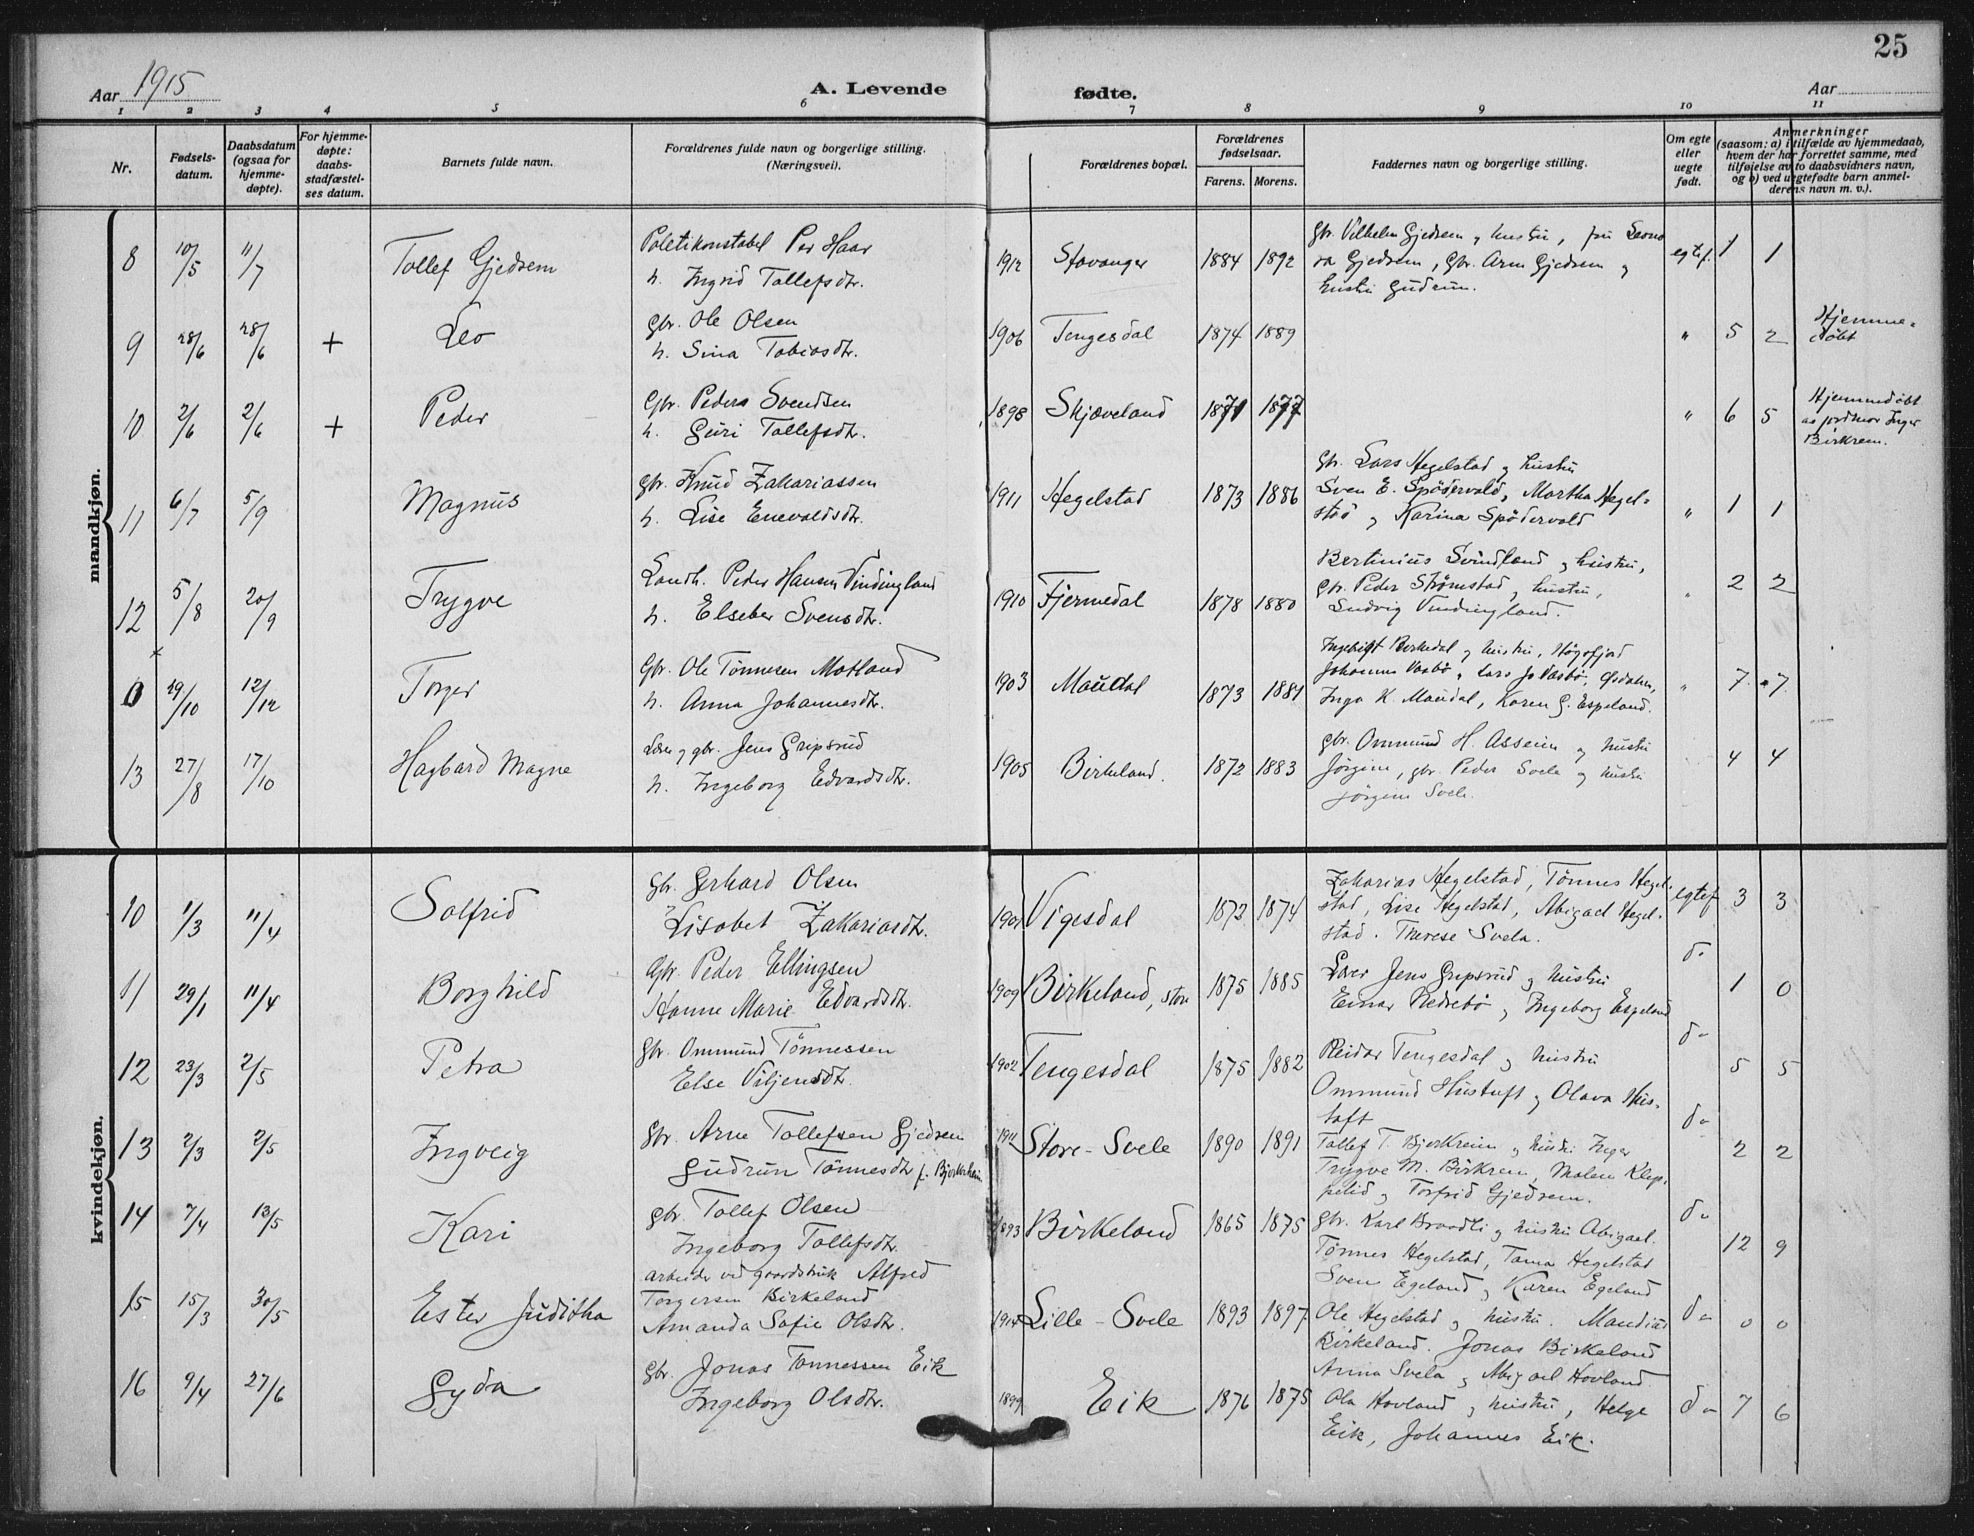 25
Aar 1915
A. Levende
fødte.
Aar
1 2 3 4 5 6 7 8 9 10 11
Nr.
Fødsels-
datum.
Daabsdatum
(ogsaa for
hjemme-
døpte).
For hjemme-
døpte:
daabs-
stadfæstel-
ses datum.
Barnets fulde navn.
Forældrenes fulde navn og borgerlige stilling.
(Næringsvei).
Forældrenes bopæl.
Forældrenes
fødselsaar.
Farens. Morens.
Faddernes navn og borgerlige stilling.
Om egte
eller
uegte
født.
Anmerkninger
(saasom: a) i tilfælde av hjemmedaab,
hvem der har forrettet samme, med
tilføielse av to daabsvidners navn,
og b) ved uegtefødte barn anmel-
derens navn m. v.).
mandkjøn.
8 10/5 11/7 Tollef Gjedrem
Politikonstabel Per Haar
h. Ingrid Tollefsdtr.
1912 Stavanger 1884 1892
Gbr. Vilhelm Gjedrem og hustru, fru Leono
ra Gjedrem, Gbr. Arne Gjedrem og
hustru Gudrun.
egtef. 1 1
9 28/6 28/6 + Leo
Gbr. Ole Olsen
h. Sina Tobiasdtr.
1906 Tengesdal 1874 1889
" 5 2
Hjemme-
døbt
10 2/6 2/6 + Peder
Gbr. Peder Svendsen
h. Guri Tollefsdtr.
1898 Skjæveland 1871 1877
" 6 5
Hjemmedøbt
av jordmor Inger
Birkrem.
11 6/7 5/9 Magnus
gbr. Knud Zakariassen
h. Lise Enevaldsdtr.
1911 Hegelstad 1873 1886
Gbr. Lars Hegelstad og hustru
Sven E. Spødervold, Martha Hegel-
stad og Karina Spødervold
" 1 1
12 5/8 20/9 Trygve
Landh. Peder Hansen Vindingland
h. Elseber Svensdtr.
1910 Fjermedal 1878 1880
Bertinius Svindland og hustru,
Gbr. Peder Strømstad, hustru,
Ludvig Vindingland.
" 2 2
19/10 12/12 Torger
Gbr. Ole Tønnesen Motland
h. Anna Johannesdtr.
1903 Maudal 1873 1881
Birkedal og hustru, Høgsfjord
Inga K. Maudal, Karen G. Espeland.
" 7 7
13 27/8 17/10 Hagbard Magne
Lærer og gbr. Jens Gripsrud
h. Ingeborg Edvardsdtr.
1905 Birkeland. 1872 1883
gbr. Ommund H. Asseim og hustru
Jørgine, gbr. Peder Svela og hustru
Jørgine Svela.
4 4
kvindekjøn.
10 1/3 11/4 Solfrid
Gbr. Gerhard Olsen
Lisabet Zakariasdtr.
1901 Vigesdal 1872 1874
Zakarias Hegelstad, Tønnes Hegel-
stad, Lise Hegelstad, Abigael Hegel-
stad. Therese Svela.
egtef 3 3
11 29/1 11/4 Borghild
Gbr. Peder Ellingsen
Hanne Marie Edvardsdtr.
1909 Birkeland, store 1875 1885
Lærer Jens Gripsrud og hustru
Einar Nedrebø, Ingeborg Espeland
do 1 0
12 23/3 2/5 Petra
Gbr. Ommund Tønnessen
Else Viljensdtr.
1902 Tengesdal 1875 1882
Reidar Tengesdal og hustru
Ommund Hustuft og Olava Hus-
tuft
do 5 5
13 2/3 2/5 Ingveig
Gbr. Arne Tollefsen Gjedrem
Gudrun Tønnesdtr f. Bjerkreim
1911 Store-Svele 1890 1891
Tollef T. Bjerkreim og hustru Inger
Trygve M. Birkrem, Malen Klep-
pelid og Torfrid Gjedrem.
do 2 2
14 7/4 13/5 Kari
gbr. Tollef Olsen
Ingeborg Tollefsdtr.
1893 Birkeland 1865 1875
gbr. Karl Braadli og hustru Abigael.
Tønnes Hegelstad, Tama Hegelstad
Sven Egeland og Karen Egeland
do 12 9
15 15/3 30/5 Ester Juditha
arbeider ved gaardsbruk Alfred
Torgersen Birkeland
Amanda Sofie Olsdtr.
1914 Lille-Svele 1893 1897
Ole Hegelstad og hustru. Mandius
Birkeland. Jonas Birkeland
Anna Svela og Abigael Hovland.
do 0 0
16 9/4 27/6 Gyda
Gbr. Jonas Tønnessen Eik
Ingeborg Olsdtr.
1899 Eik 1876 1875
Ola Hovland og hustru, Helge
Eik, Johannes Eik.
do 7 6